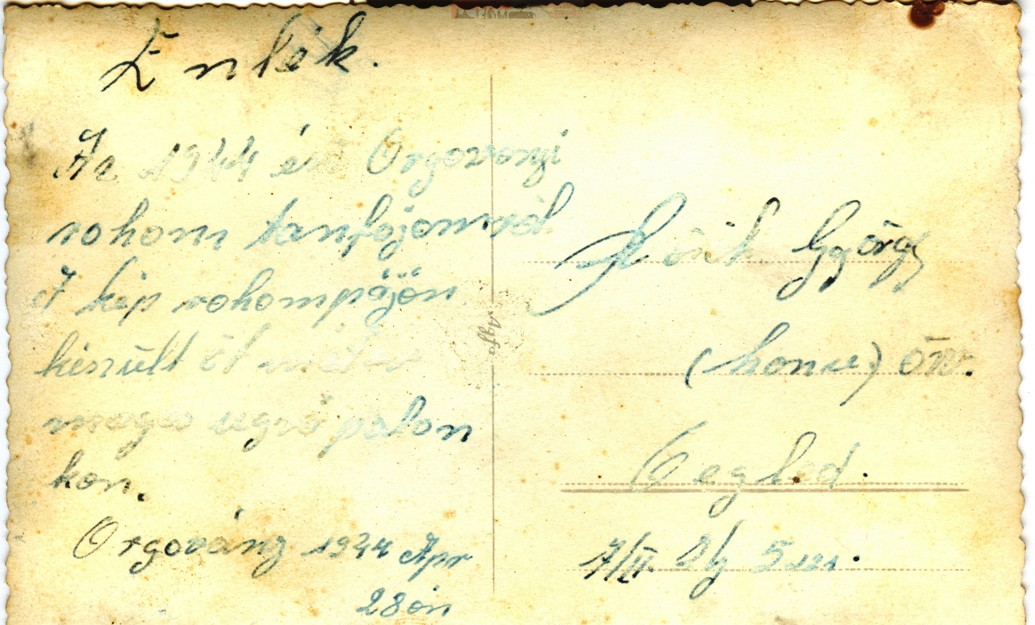 Emlék.
Az 1944 évi Orgoványi
rohom tanfojamról
A kép rohompájón
készült öt méter
magas ugró palon
kon.
Orgovány 1944 Apr
28 ón
György
(honv) őrv.
Cegléd.
7/II.
Agfa